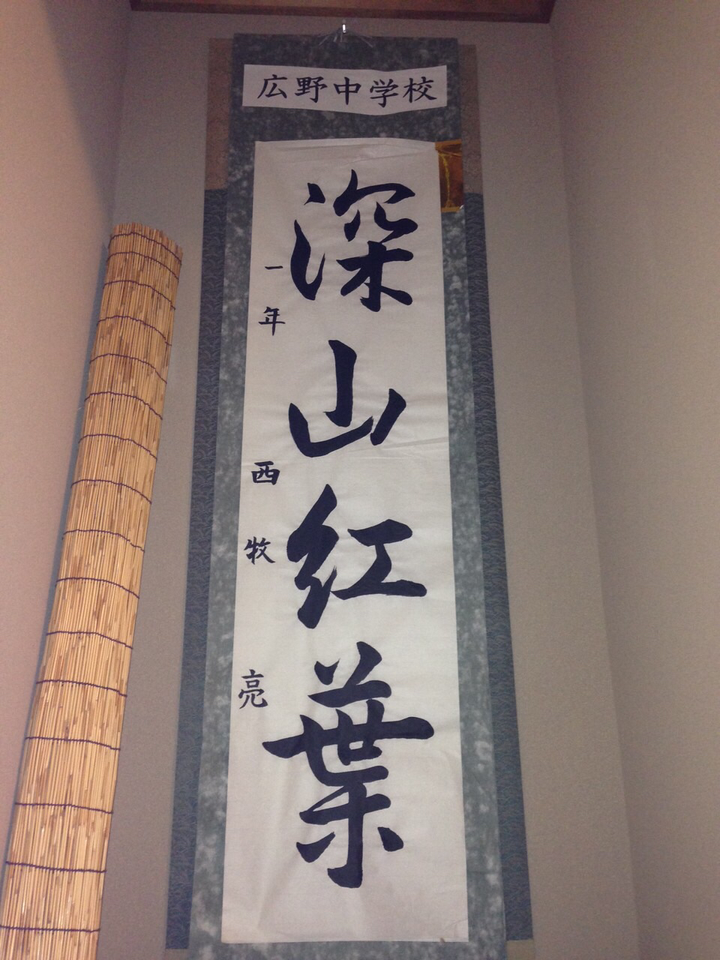 広野中学校
深山紅葉
一年 西牧 亮